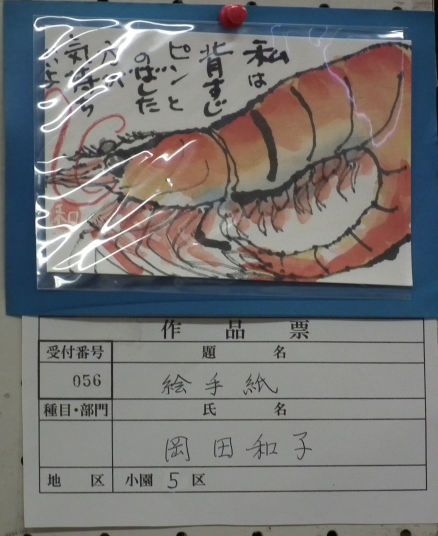 私は
背すじ
ピンと
のばした
方が
気持ち
作品票
受付番号 題名
056 絵手紙
種目・部門 氏名
岡田和子
地区 小園 5 区